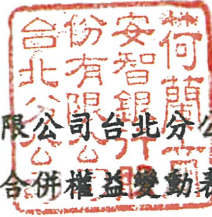 荷蘭商
安智銀行
份有限公
台北分公
限公司台北分公
合併權益變動表